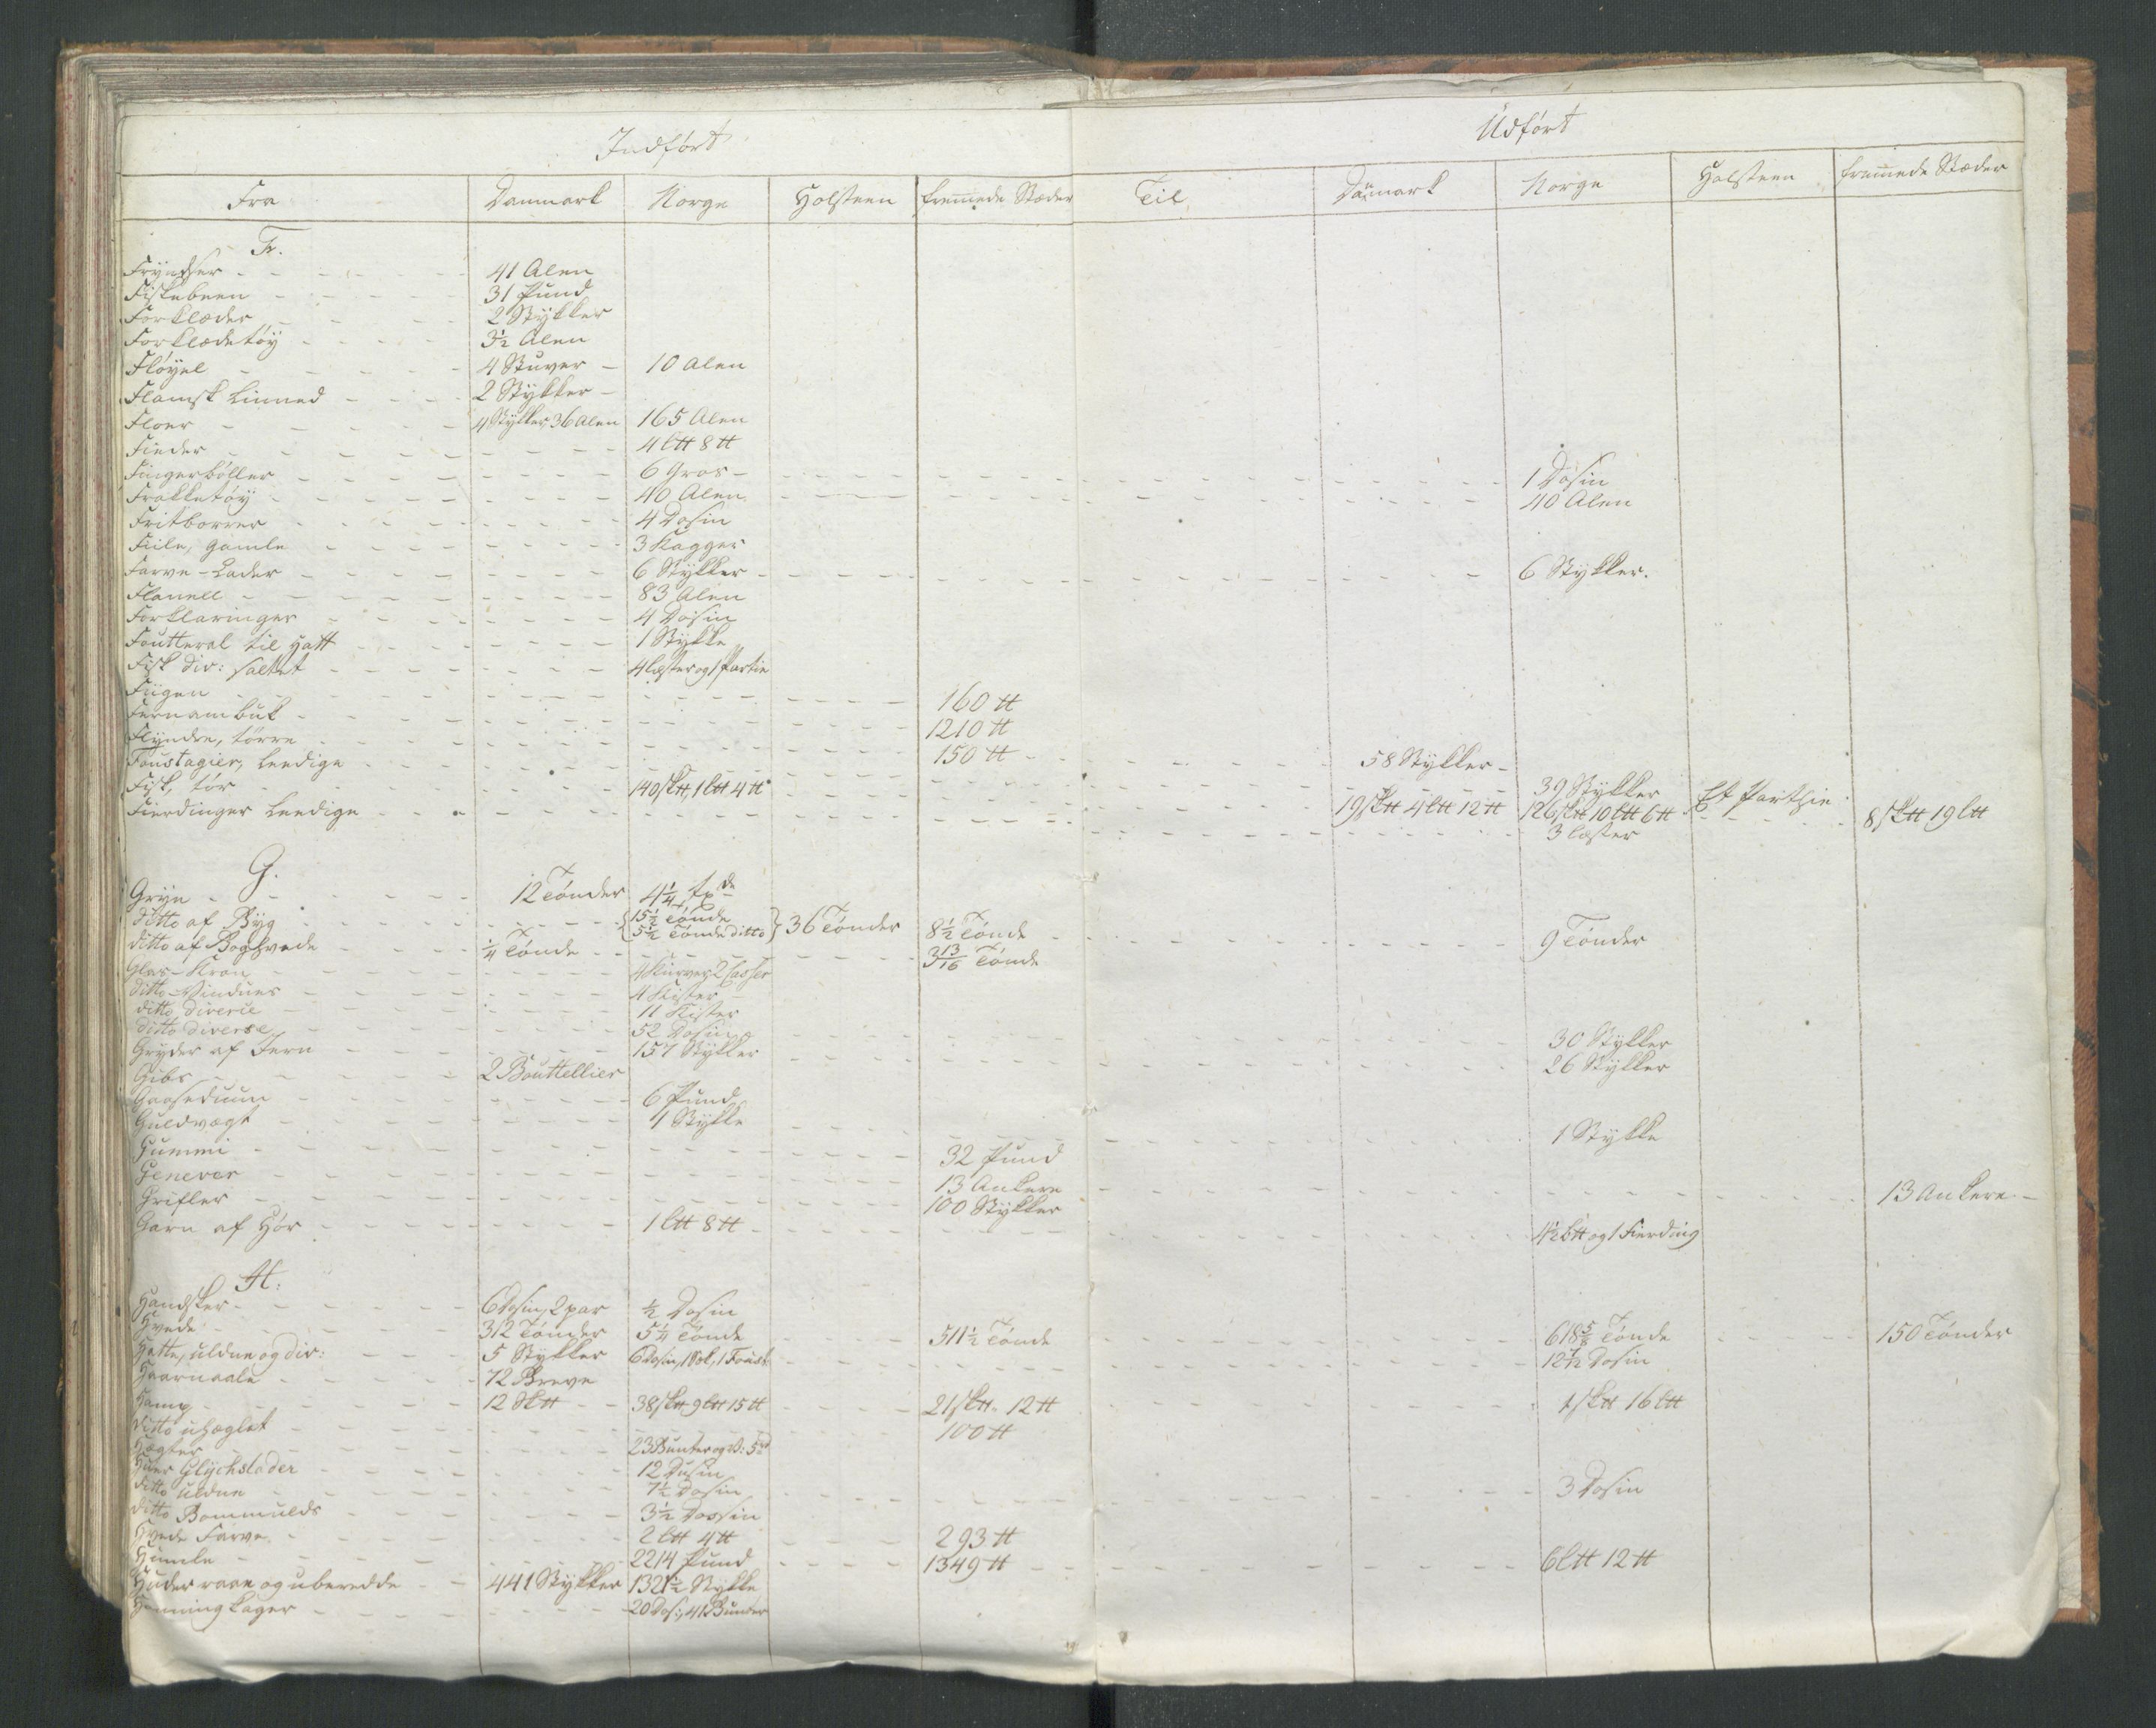 Indført
Udført
Fra Danmark Norge Holsteen fremmede Stæder Til Danmark Norge Holsteen fremmede Stæder
F.
Fryndser 41 Alen
Fiskebeen 31 Pund
Forklæder 2 Stykker
Forklædetöy 3½ Alen
Fløyel 4 Stuver 10 Alen
Flamsk Linned 2 Stykker
Floer 4 Stykker 36 Alen 165 Alen
Fieder 4 l℔ 8 ℔
Fingerböller 6 Gros 1 Dosin
Frakketöy 40 Alen 40 Alen
Fritborrer 4 Dosin
Fiile, gamle 3 Kagger
Farve-Lader 6 Stykker 6 Stykker.
Flanell 83 Alen
Forklaringer 4 Dosin
Foutteral til Hatt 1 Stykke
Fisk div: saltet 4 læster og 1 Partie
Fiigen 160 ℔
Fernambuk 1210 ℔
Flyndre, törre 150 ℔
Foustagier, leedige 58 Stykker 39 Stykker
Fisk, tör 140 sk℔, 1 l℔ 4 ℔ 19 sk℔ 4 l℔ 12 ℔ 126 sk℔ 10 l℔ 6 ℔ Et Parthie 8 sk℔ 19 l℔
Fierdinger leedige 3 læster
G.
Gryn 12 Tønder 4¼ Tønde
ditto af Byg 15½ Tønde 5½ Tønde ditto 36 Tønder 8½ Tønde 9 Tønder
ditto af Boghvede ¼ Tønde 3 13/16 Tønde
Glas-Kron 4 Kurver 2 Casser
ditto-Vindues 4 Kister
ditto diverse 11 Kister
ditto diverse 52 Dosin 30 Stykker
Gryder af Jern 157 Stykker 26 Stykker
Gibs 2 Bouttellier
Gaaseduun 6 Pund
Guldvægt 1 Stykke 1 Stykke
Gummi 32 Pund
Genever 13 Ankere 13 Ankere
Grifler 100 Stykker
Garn af Hör 1 l℔ 8 ℔ 4½ l℔ og 1 Fierding
H.
Handsker 6 Dosin, 2 par ½ Dosin
Hvede 312 Tønder 5¼ Tønde 511½ Tønde 618⅝ Tønde 150 Tønder
Hatte, uldne og div: 5 Stykker 6 Dosin, 1 Stk, 1 Foust. 12 1/12 Dosin
Haarnaale 72 Breve
Hamp 12 Sk℔ 38 sk℔ 9 l℔ 15 ℔ 21 sk℔ 12 ℔ 1 sk℔ 16 l℔
ditto uheglet 100 ℔
Hægter 23 Bunter og
Huer Glychstader 12 Dusin
ditto uldne 7½ Dosin 3 Dosin
ditto Bommulds 3½ Dossin
Hvede Farve 2 l℔ 4 ℔ 293 ℔
Humle 2214 Pund 1349 ℔ 6 l℔ 12 ℔
Huder raae og uberedde 441 Stykker 1321½ Stykke
Honning kager 20 Dos:, 41 Bunter